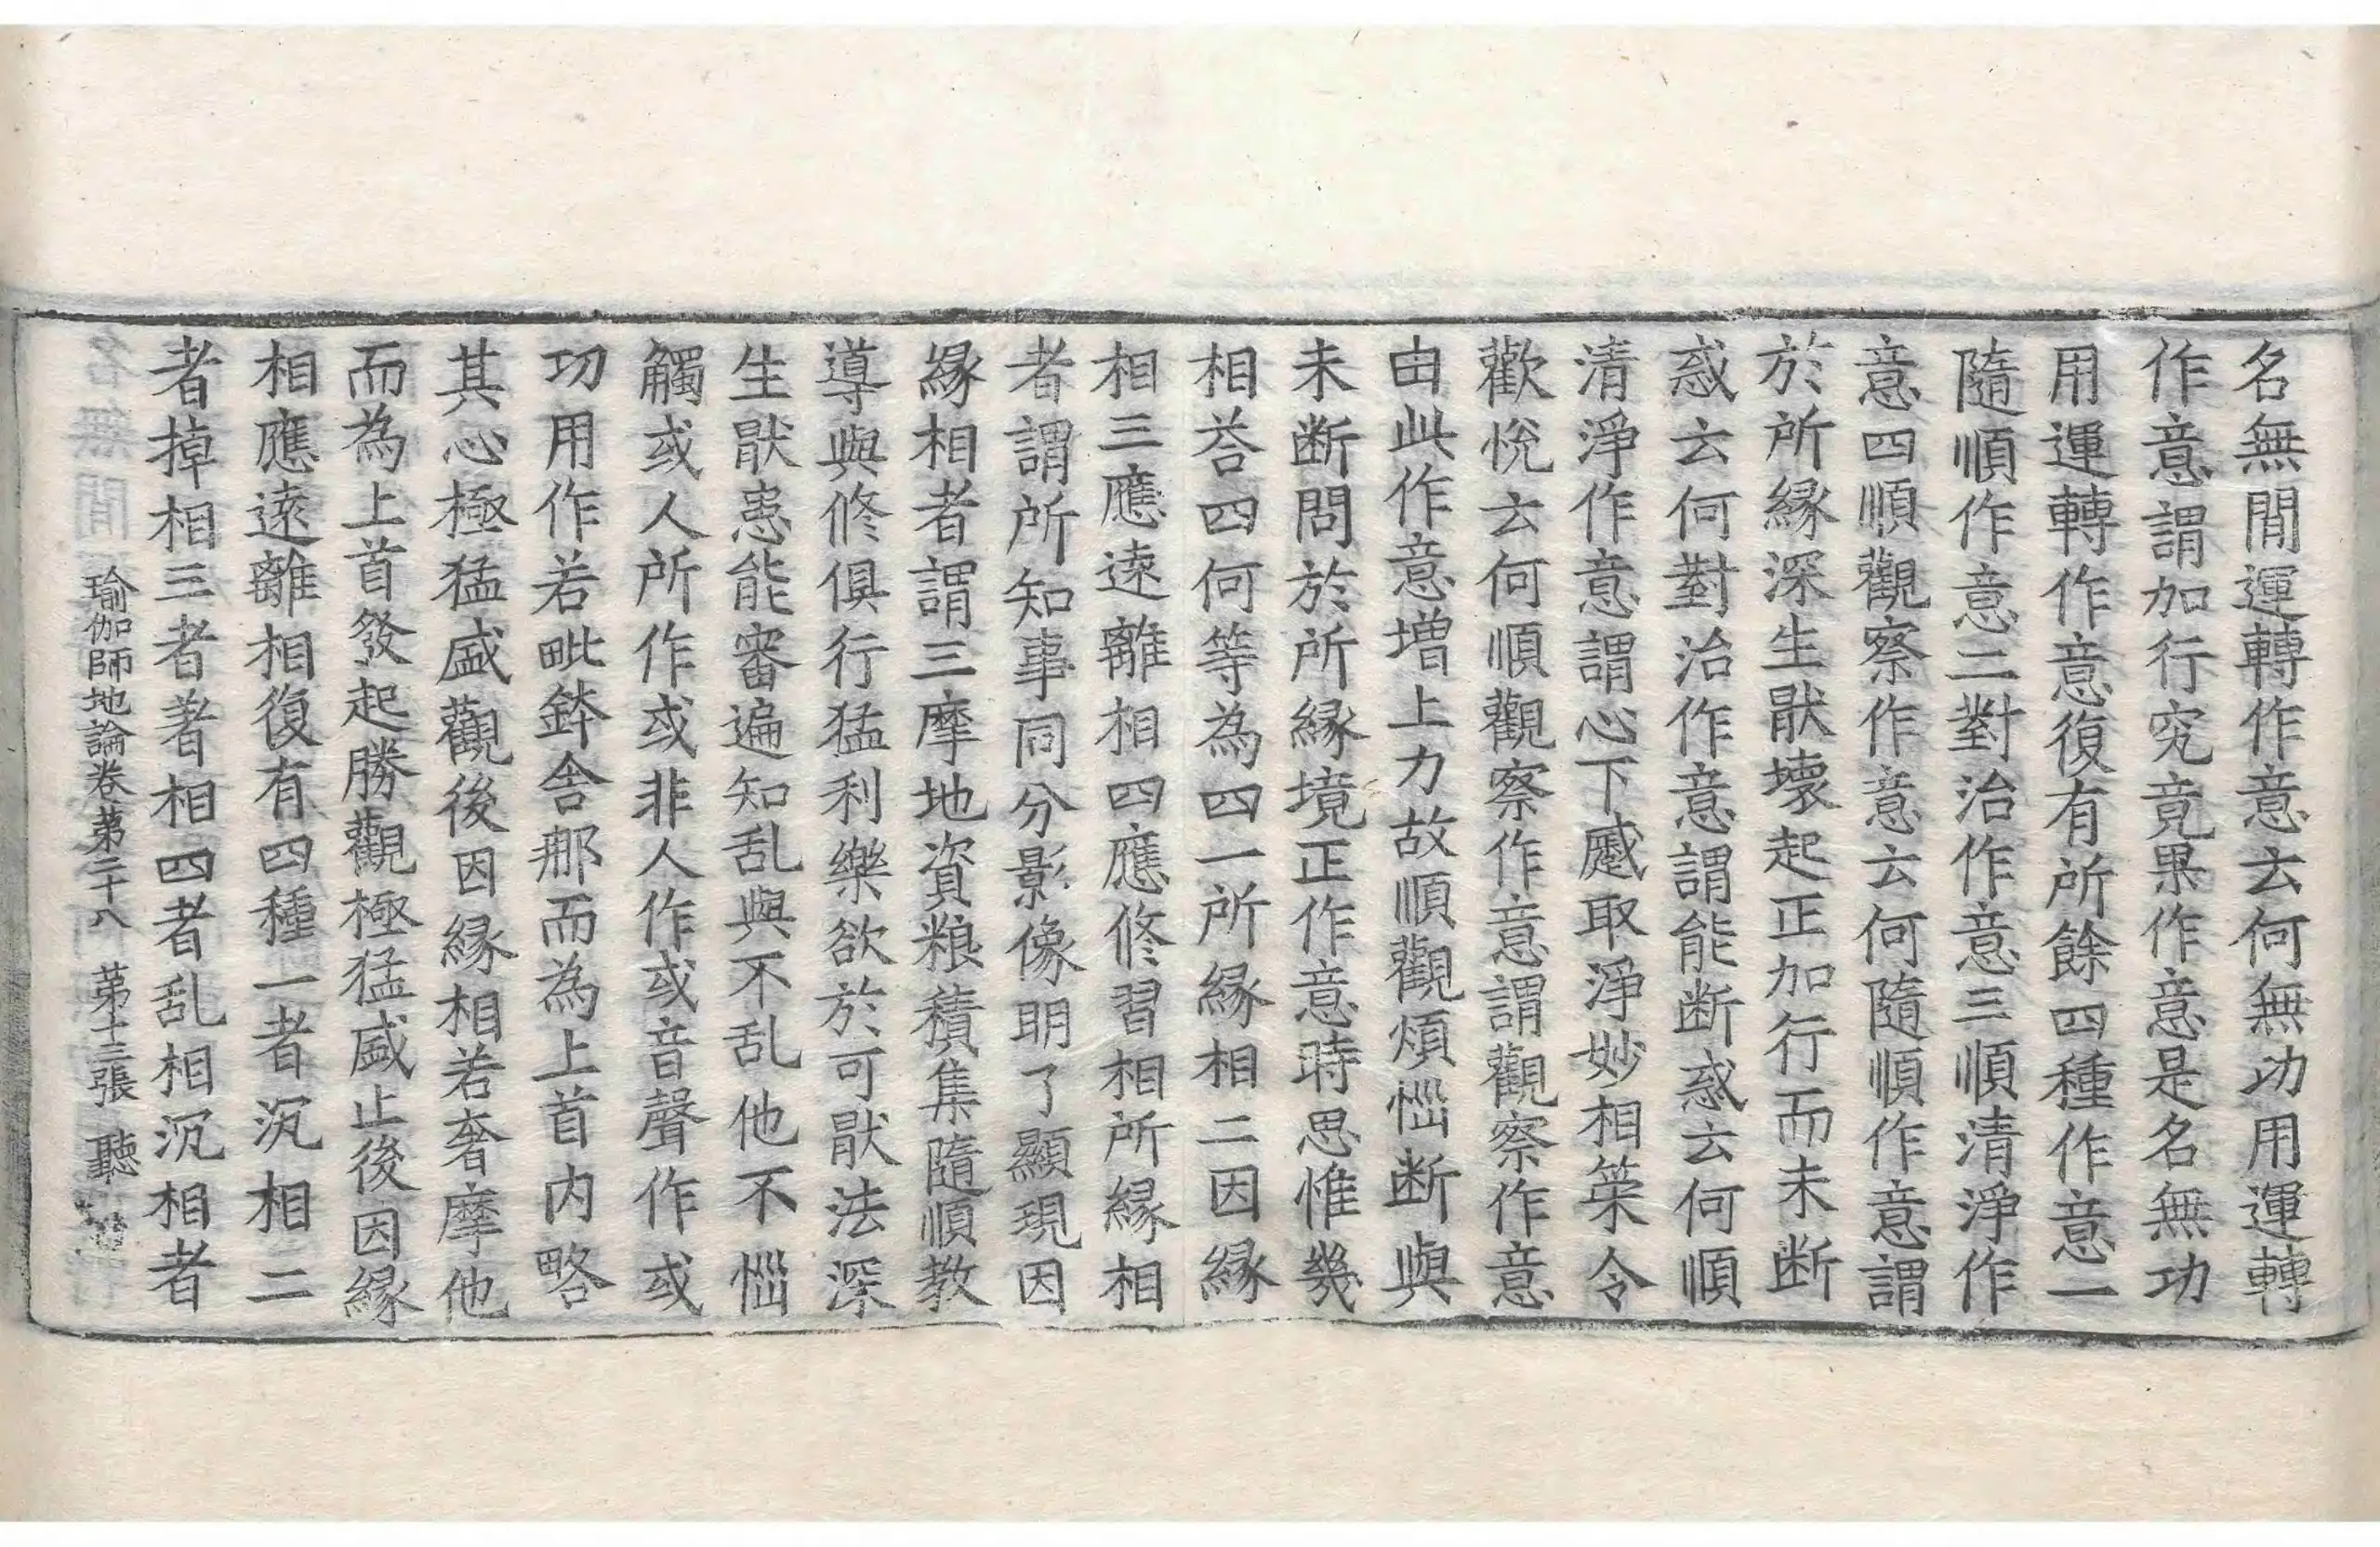 名無閒運轉作意云何無功用運轉
作意謂加行究竟果作意是名無功
用運轉作意復有所餘四種作意一
隨順作意二對治作意三順清淨作
意四順觀察作意云何隨順作意謂
於所縁深生猒壞起正加行而未斷
惑云何對治作意謂能斷惑云何順
清淨作意謂心下慼取淨妙相䇿令
歡悅云何順觀察作意謂觀察作意
由此作意增上力故順觀煩惱斷與
未斷問於所縁境正作意時思惟幾
相荅四何等為四一所縁相二因縁
相三應遠離相四應修習相所縁相
者謂所知事同分影像明了顯現因
縁相者謂三摩地資粮積集隨順教
導與修俱行猛利樂欲於可猒法深
生猒患能審遍知乱與不乱他不惱
觸或人所作或非人作或音聲作或
功用作若毗鉢舍那而為上首内略
其心極猛盛觀後因縁相若奢摩他
而為上首發起勝觀極猛盛止後因縁
相應遠離相復有四種一者沉相二
者掉相三者著相四者乱相沉相者
瑜伽師地論卷第二十八 第十三張 聽